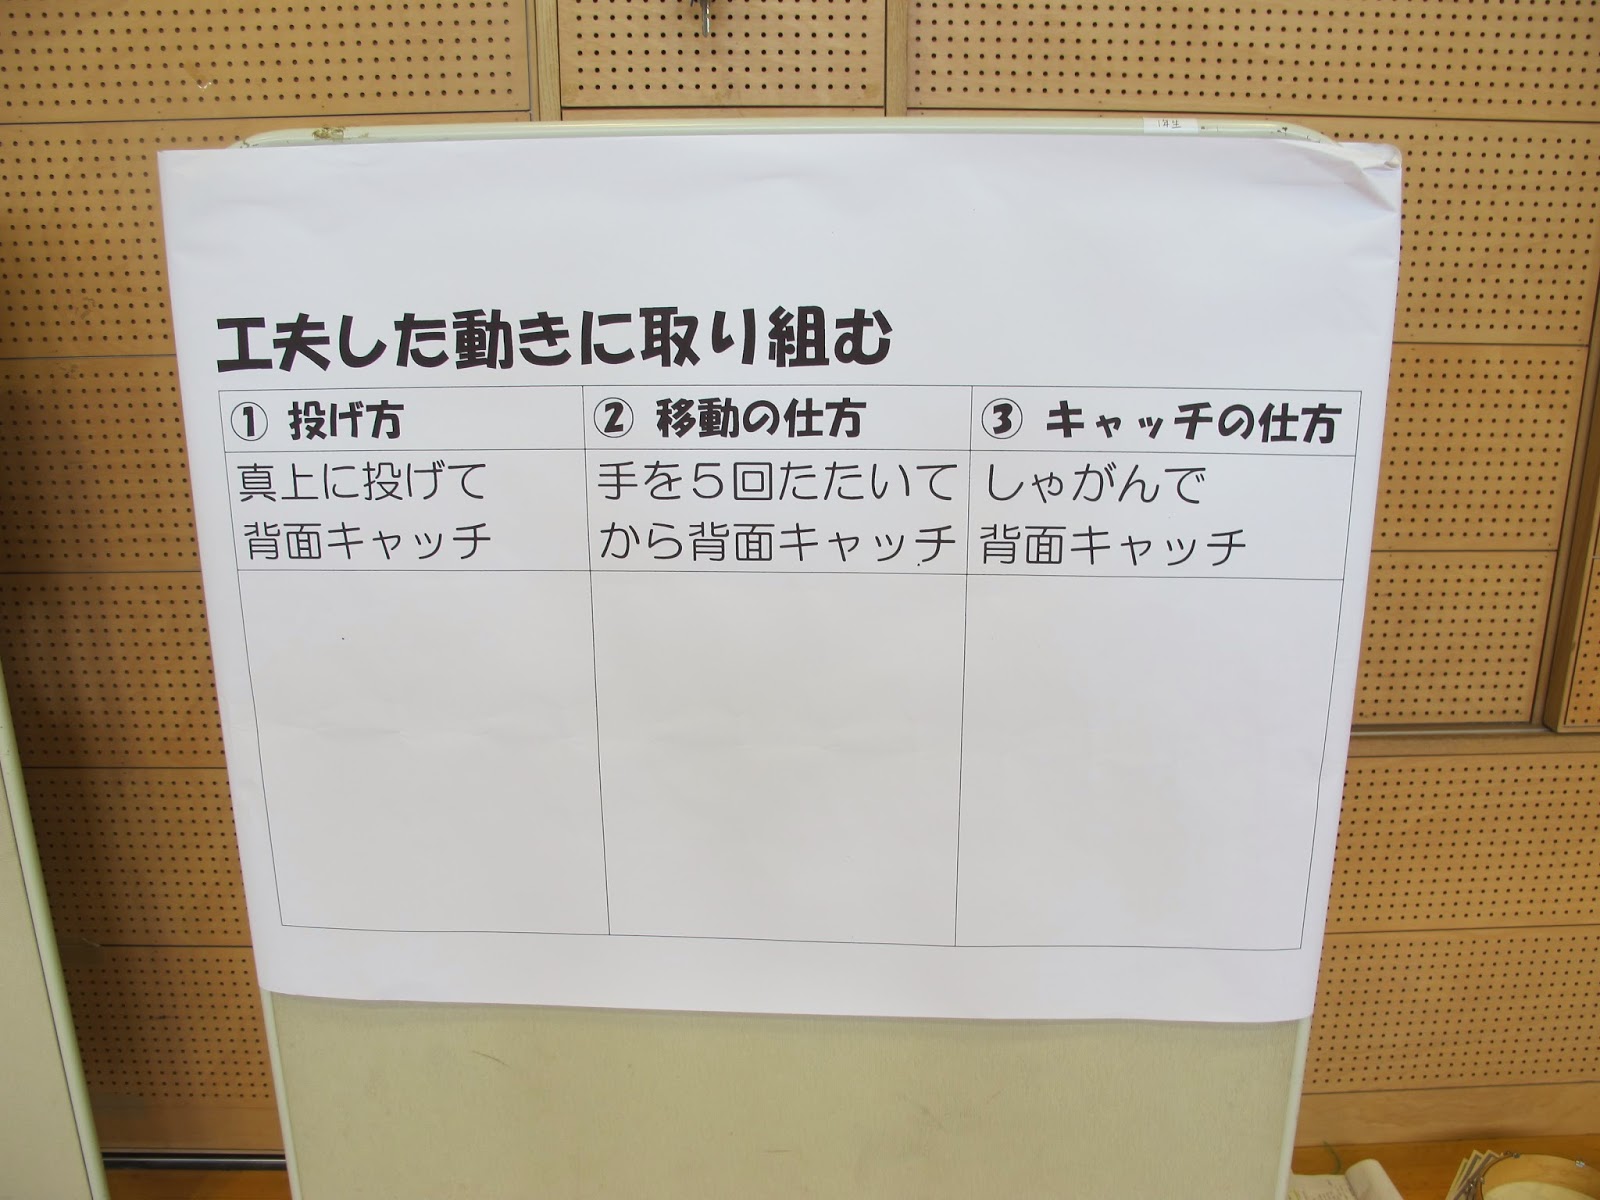 1年生
工夫した動きに取り組む
① 投げ方
真上に投げて
背面キャッチ
② 移動の仕方
手を５回たたいて
から背面キャッチ
③ キャッチの仕方
しゃがんで
背面キャッチ